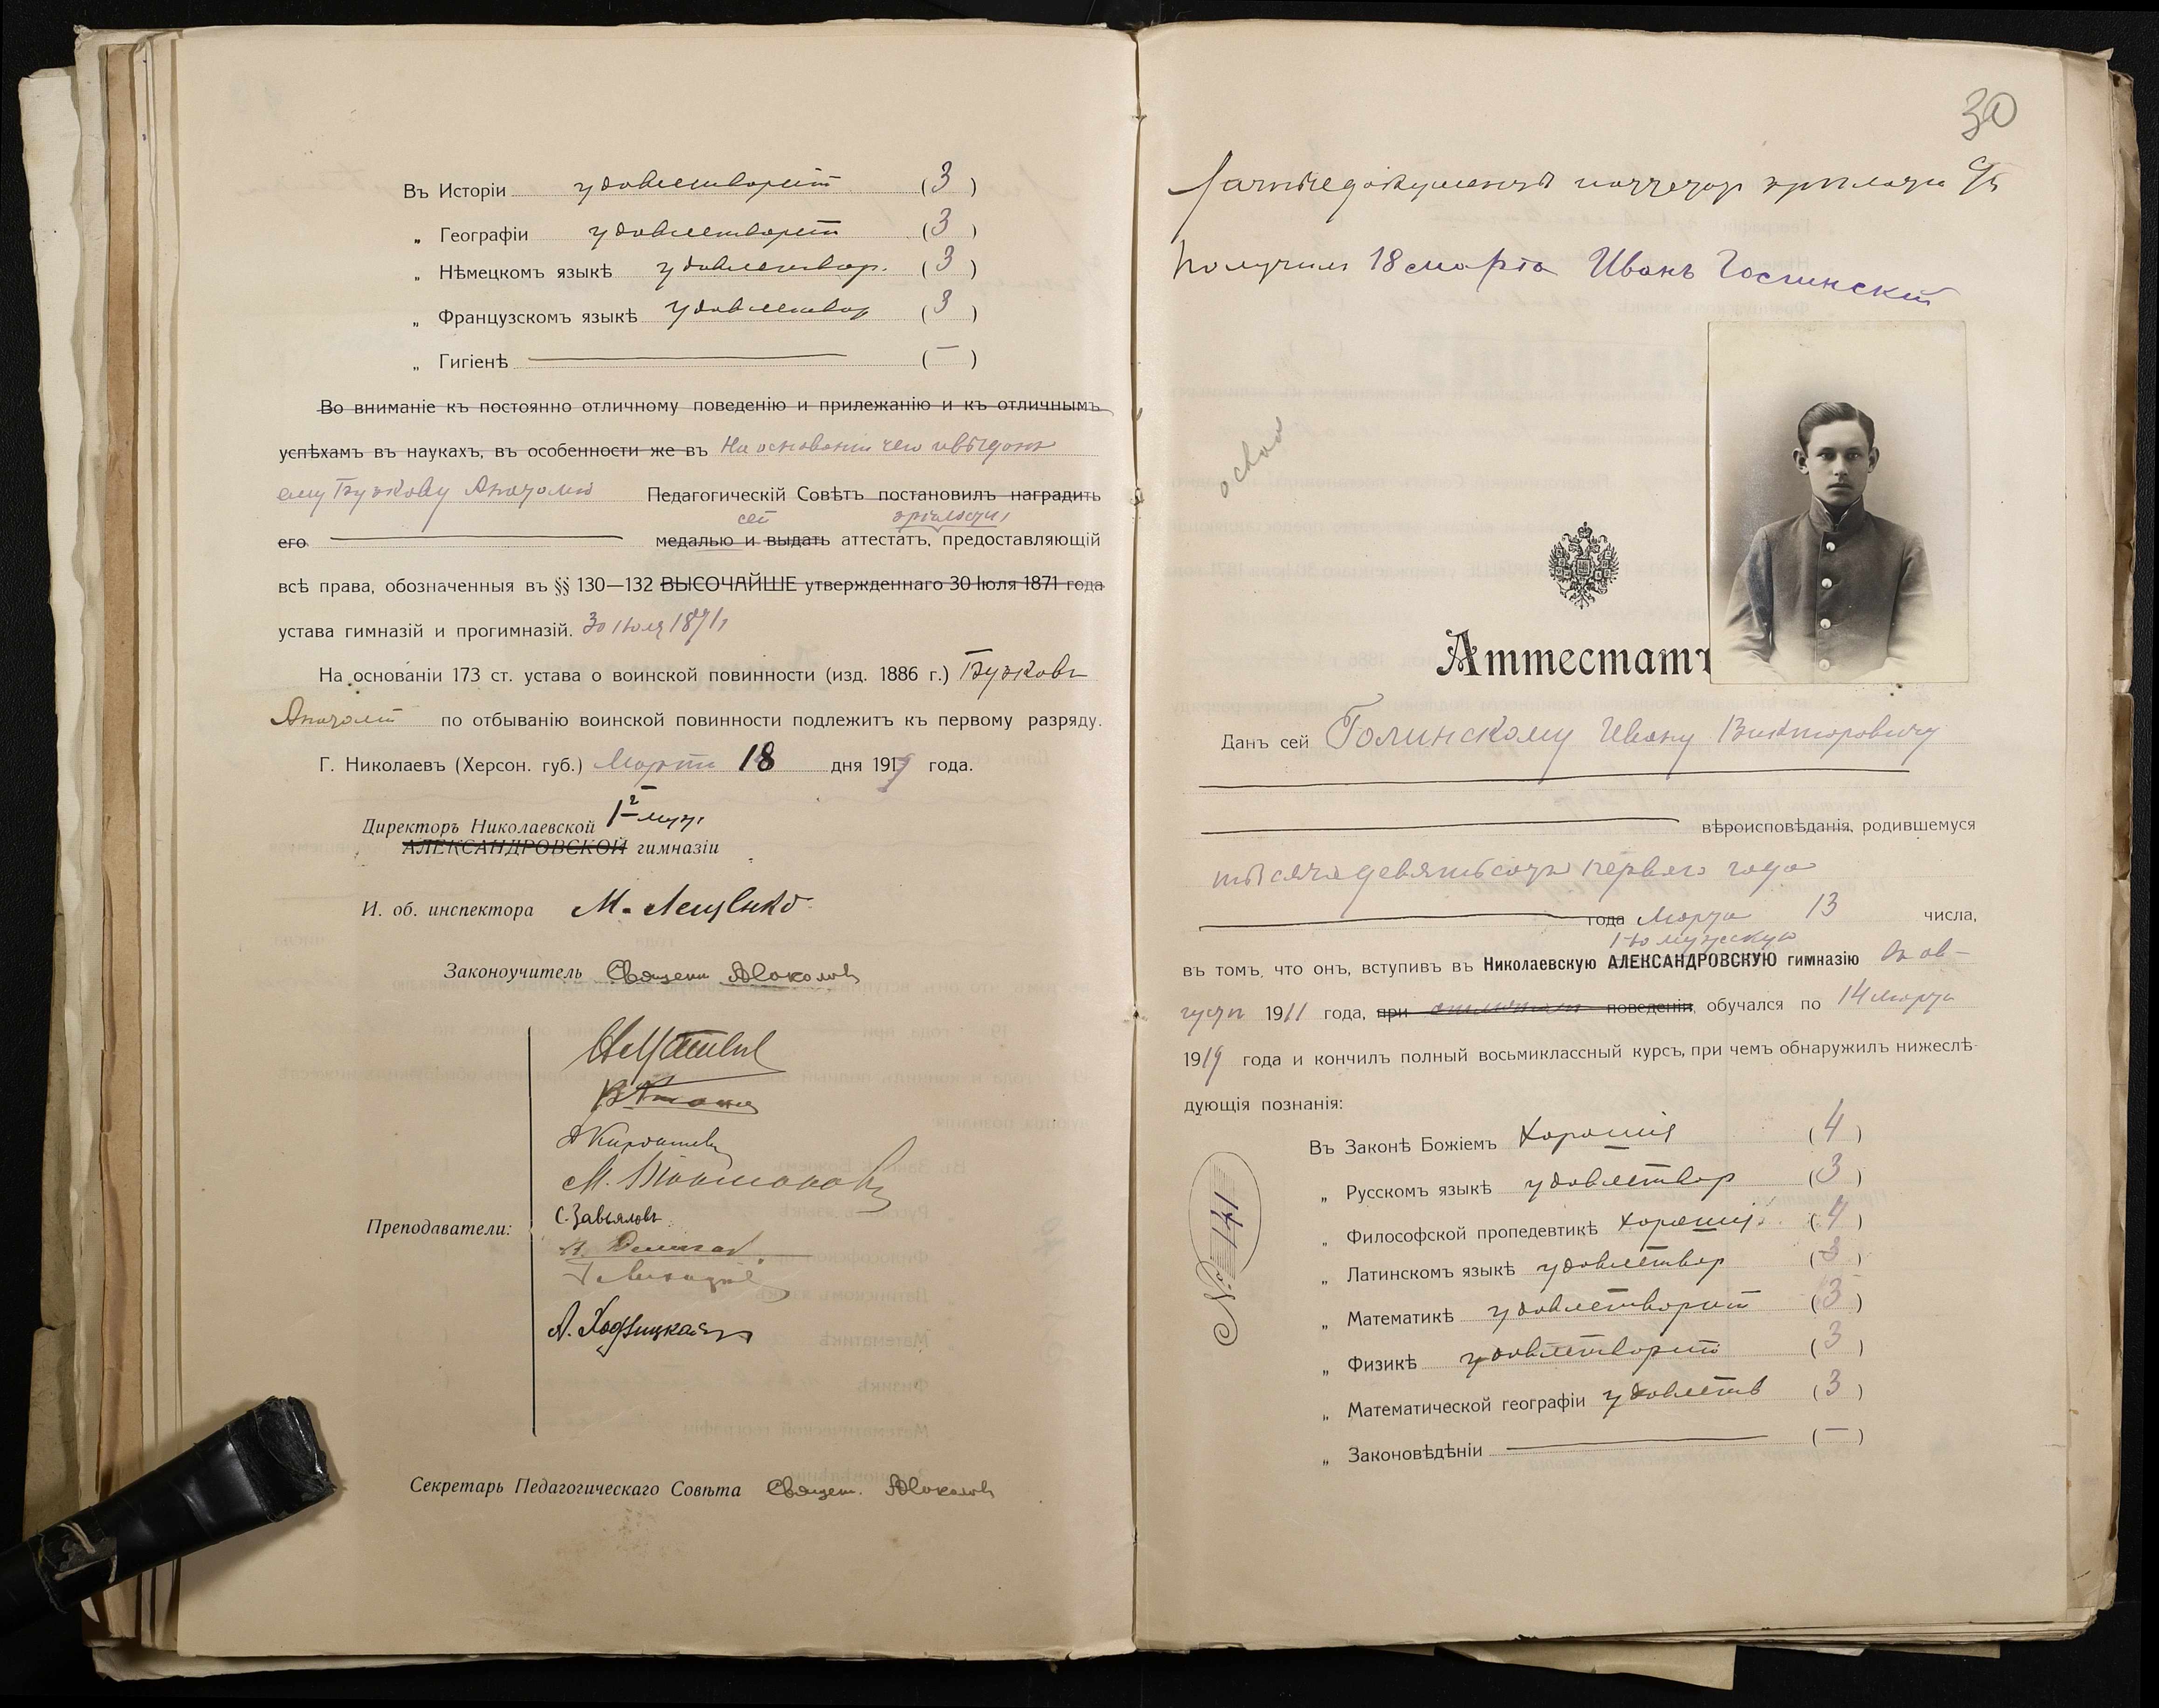 Въ Исторіи удовлетворит (3)
„ Географіи удовлетворит (3)
„ Нѣмецкомъ языкѣ удовлетвор. (3)
„ Французскомъ языкѣ удовлетвор (3)
„ Гигіенѣ (—)
Во вниманіе къ постоянно отличному поведенію и прилежанію и къ отличнымъ
успѣхамъ въ наукахъ, въ особенности же въ На основаніи чего и выданъ
ему Бузкову Анатолію Педагогическій Совѣтъ постановилъ наградить
сей зрѣлости,
его медалью и выдать аттестатъ, предоставляющій
всѣ права, обозначенныя въ §§ 130—132 ВЫСОЧАЙШЕ утвержденнаго 30 Іюля 1871 года
устава гимназій и прогимназій. 30 Іюля 1871 г
На основаніи 173 ст. устава о воинской повинности (изд. 1886 г.) Бузковъ
Анатолій по отбыванію воинской повинности подлежитъ къ первому разряду.
Г. Николаевъ (Херсон. губ.) Марта 18 дня 1919 года.
Директоръ Николаевской 1-й муж.
АЛЕКСАНДРОВСКОЙ гимназіи
И. об. инспектора М. Лещенко
Законоучитель Священ Соколовъ
Преподаватели:
С. Завьяловъ
Секретарь Педагогическаго Совѣта Священ. Соколовъ
30
Получилъ 18 марта Иванъ Голинскій
Аттестатъ
Данъ сей Голинскому Ивану Викторовичу
вѣроисповѣданія, родившемуся
тысяча девятьсотъ перваго года
года Марта 13 числа,
1-ю мужскую
въ томъ, что онъ, вступивъ въ Николаевскую АЛЕКСАНДРОВСКУЮ гимназію въ ав-
густѣ 1911 года, при отличномъ поведеніи, обучался по 14 марта
1919 года и кончилъ полный восьмиклассный курсъ, при чемъ обнаружилъ нижеслѣ-
дующія познанія:
Въ Законѣ Божіемъ хорошія (4)
„ Русскомъ языкѣ удовлетвор (3)
„ Философской пропедевтикѣ хорошія (4)
„ Латинскомъ языкѣ удовлетвор (3)
„ Математикѣ удовлетворит (3)
„ Физикѣ удовлетворит (3)
„ Математической географіи удовлетв (3)
„ Законовѣдѣніи (—)
№ 141